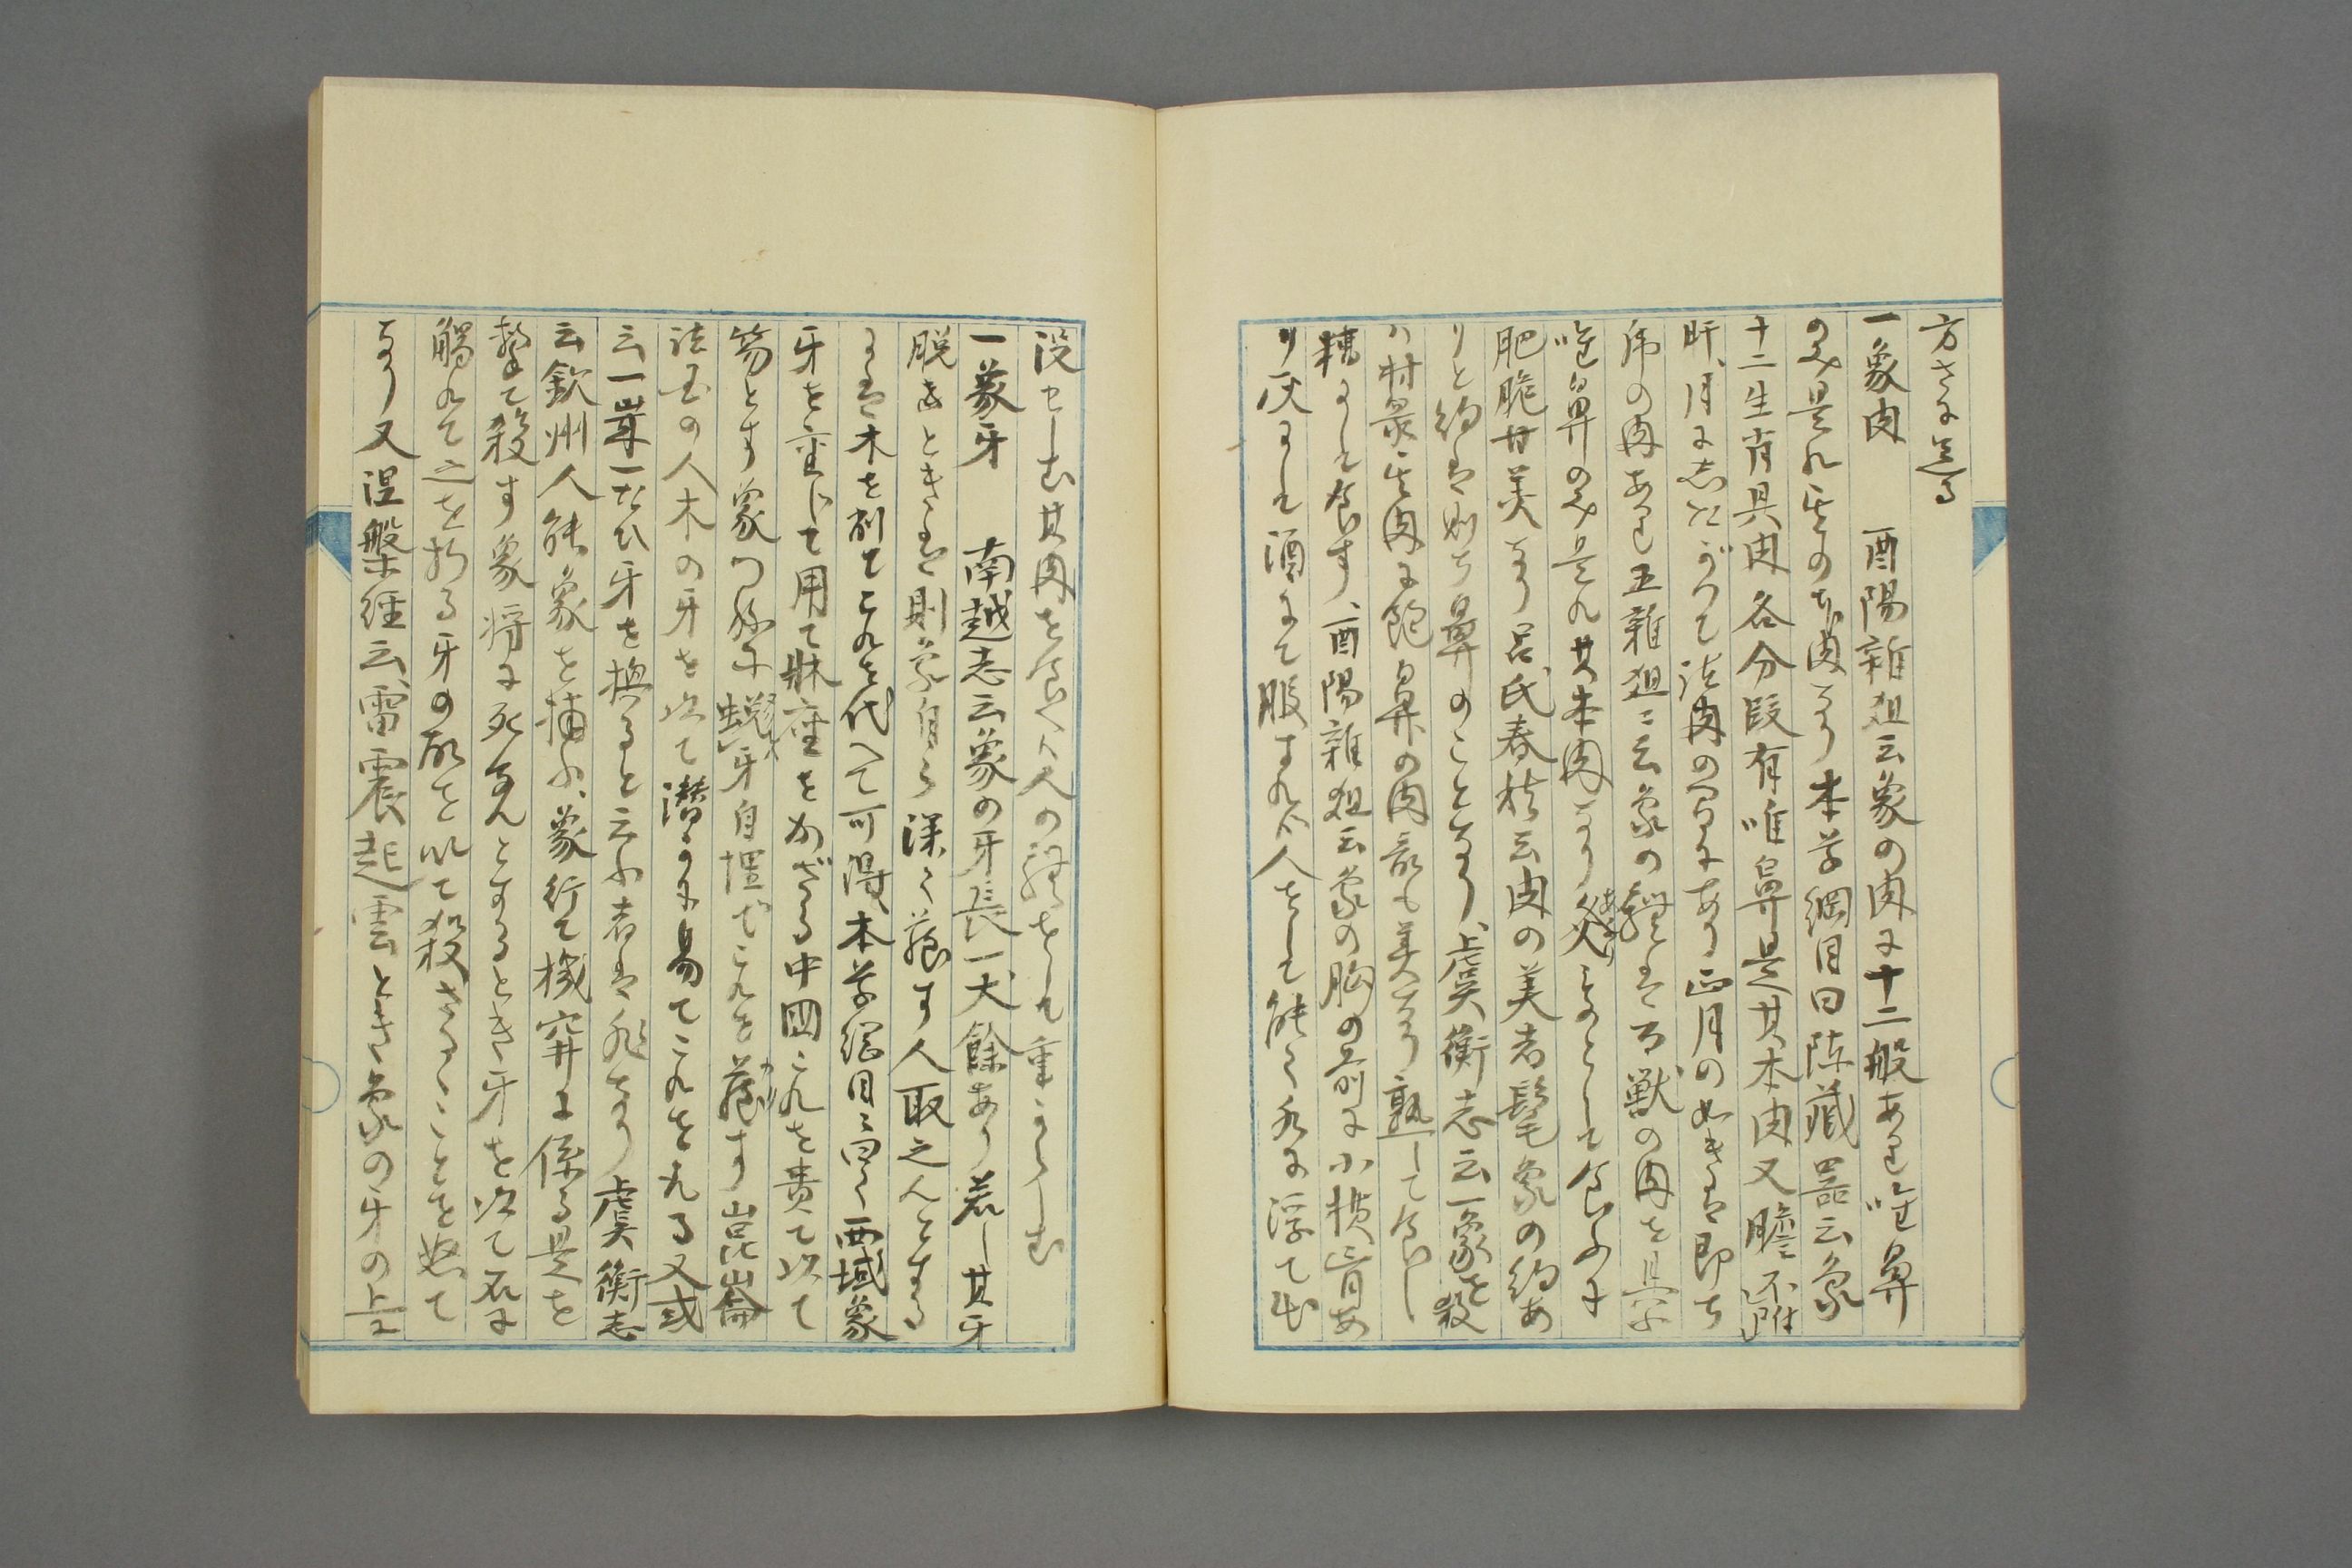 方さに盡る
一象肉　酉陽雑俎云象の肉に十二般あり唯鼻
のみ是れ其の本肉なり本草綱目曰陳蔵器云象
十二生肖具肉各分段有唯鼻是其本肉又膽不附
肝、月にしたがつて諸肉の間にあり正月の如きは即ち
虎の肉あり五雑俎ニ云象の躰は百獣の肉を具ふ
唯鼻のみ是れ其本肉なり炙ものとして食ふに
肥脆甘美なり呂氏春秋云肉の美者髦象の約あ
りと約は則ち鼻のことなり、虞衡志云一象を殺
ハ村衆其肉に飽鼻の肉最も美なり熟して食し
糟にして食す、酉陽雑俎云象の胸の前に小横骨あ
り灰にして酒にて服すれハ人をして能く水に浮て出
没せしむ其肉を食ヘハ人の躰をして重からしむ
一象牙　南越志云象の牙長一丈餘あり若し其牙
脱るときは則象自ら深く蔵す人取之んとする
には木を削てこれを代へて可得本草綱目ニ曰く西域象
牙を重じて用て牀座をかざる中国これを貴て以て
笏とす象つねに蛻牙自埋てこれを蔵す崑崙
諸国の人木の牙を以て潜かに易てこれをとる又或
云一嶪一たひ牙を換ると云ふ者は非なり虞衡志
云欽州人能象を捕ふ、象行て機穽に係る是を
撃て殺す象将に死なんとするとき牙を以て石に
觸れて之を折る牙の故を以て殺さるゝことを怒て
なり又涅槃経云、雷震起雲とき象の牙の上に